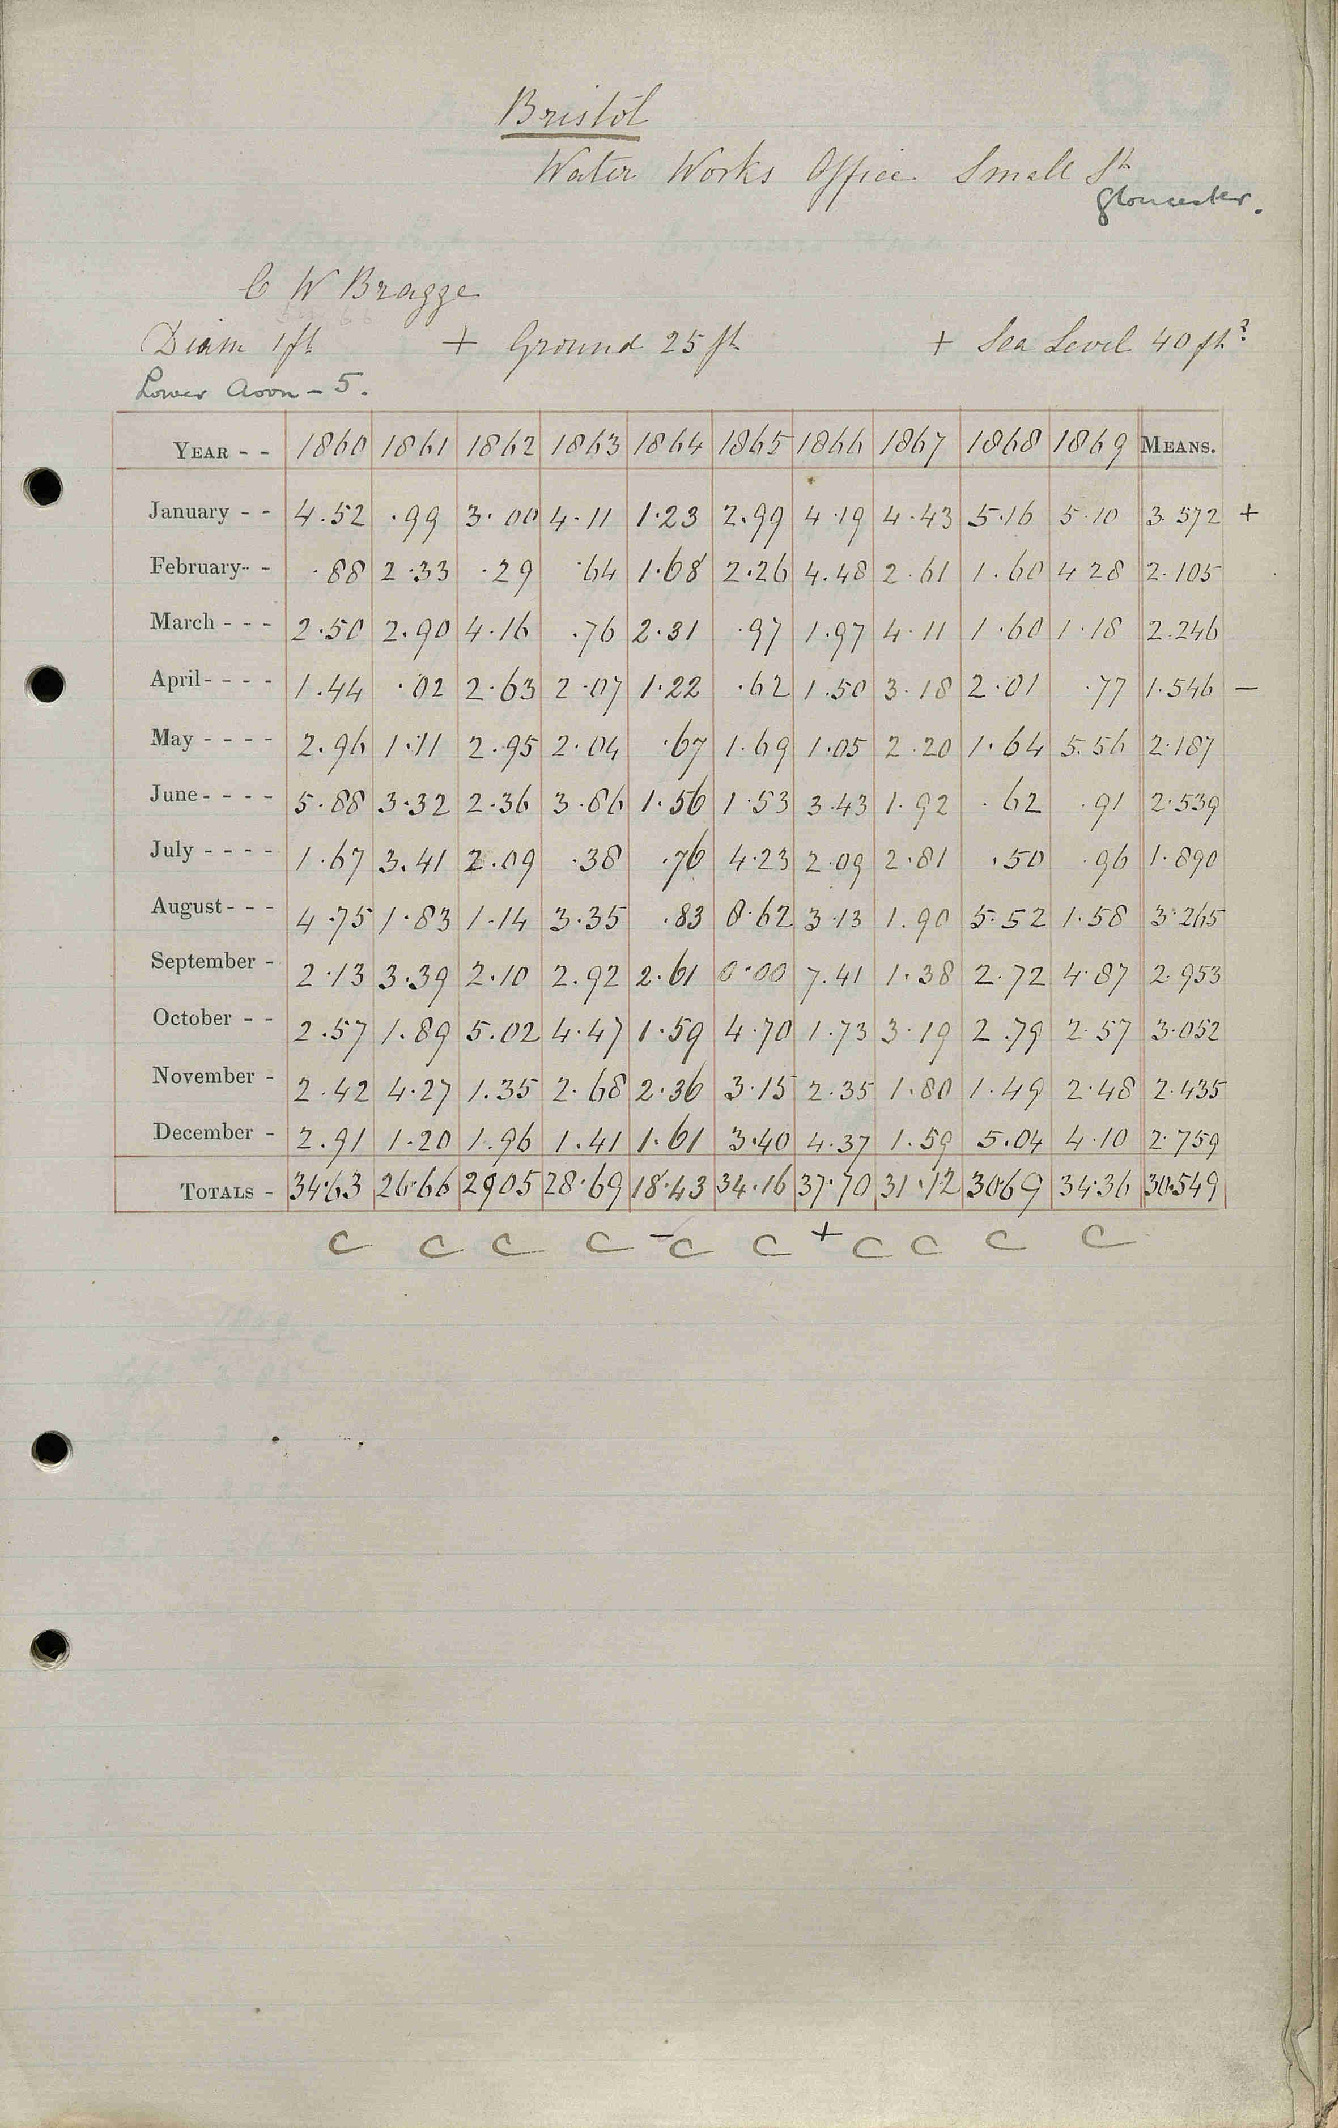 Bristol
Water Works Office Small St
Gloucester.
C W Bragge
Diam 1ft + Ground 25 ft + Sea Level 40 ft?
Lower Avon - 5.
YEAR - - 1860 1861 1862 1863 1864 1865 1866 1867 1868 1869 MEANS.
January - - 4.52 .99 3.00 4.11 1.23 2.99 4.19 4.43 5.16 5.10 3.572 +
February - - .88 2.33 .29 .64 1.68 2.26 4.48 2.61 1.60 4 28 2.105
March - - - 2.50 2.90 4.16 .76 2.31 .97 1.97 4.11 1.60 1.18 2.246
April - - - - 1.44 .02 2.63 2.07 1.22 .62 1.50 3.18 2.01 .77 1.546 -
May - - - - 2.96 1.11 2.95 2.04 .67 1.69 1.05 2.20 1.64 5.56 2.187
June - - - - 5.88 3.32 2.36 3.86 1.56 1.53 3.43 1.92 .62 .91 2.539
July - - - - 1.67 3.41 2.09 .38 .76 4.23 2.09 2.81 .50 .96 1.890
August - - - 4.75 1.83 1.14 3.35 .83 8.62 3.13 1.90 5.52 1.58 3.265
September - 2.13 3.39 2.10 2.92 2.61 0.00 7.41 1.38 2.72 4.87 2.953
October - - 2.57 1.89 5.02 4.47 1.59 4.70 1.73 3.19 2.79 2.57 3.052
November - 2.42 4.27 1.35 2.68 2.36 3.15 2.35 1.80 1.49 2.48 2.435
December - 2.91 1.20 1.96 1.41 1.61 3.40 4.37 1.59 5.04 4.10 2.759
TOTALS - 34.63 26.66 29 05 28.69 18.43 34.16 37.70 31.12 30.69 34.36 30.549
C C C C - C C + C C C C